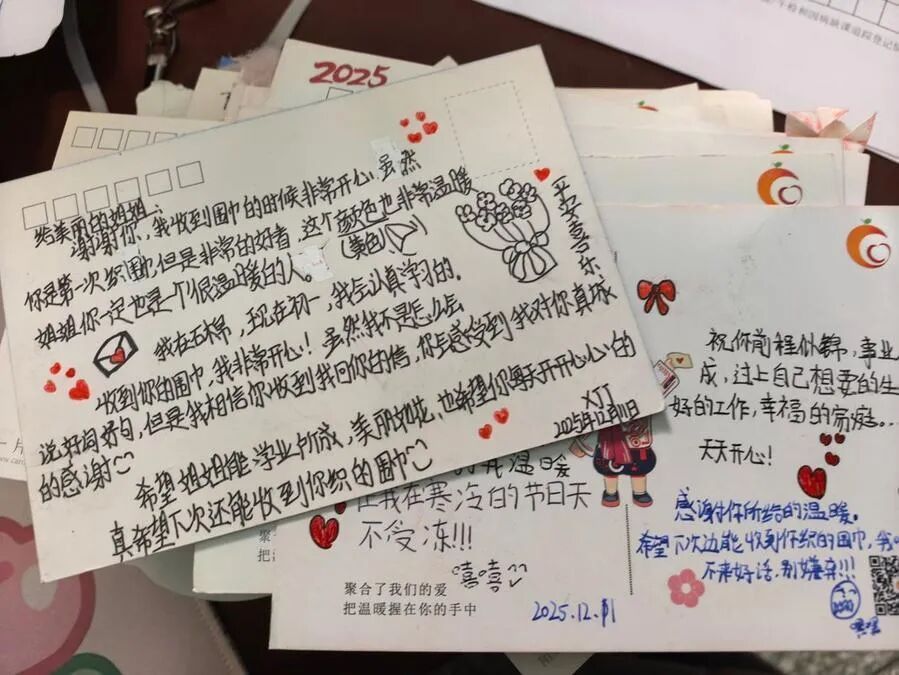 2025
给美丽的姐姐:
谢谢你,我收到围巾的时候非常开心,虽然
你是第一次织围巾,但是非常的好看,这个颜色也非常温暖
(黄色)
姐姐你一定也是一个很温暖的人。
我在五棉,现在初一,我会认真学习的。
收到你的围巾,我非常开心!虽然我不是怎么会
说好词好句,但是我相信你收到我回你的信,你会感受到我对你真诚
的感谢
希望姐姐能学业所成,美丽如花,也希望你每天开开心心的
真希望下次还能收到你织的围巾
XJJ
2025年12月11日
平安喜乐
温暖
让我在寒冷的节日天
不受冻!!!
嘻嘻
聚合了我们的爱
把温暖握在你的手中
2025.12.11
祝你前程似锦,事业
成,过上自己想要的生
好的工作,幸福的家庭...
天天开心!
感谢你所给的温暖。
希望下次还能收到你织的围巾,我
不来好话,别嫌弃!!!
嘿嘿